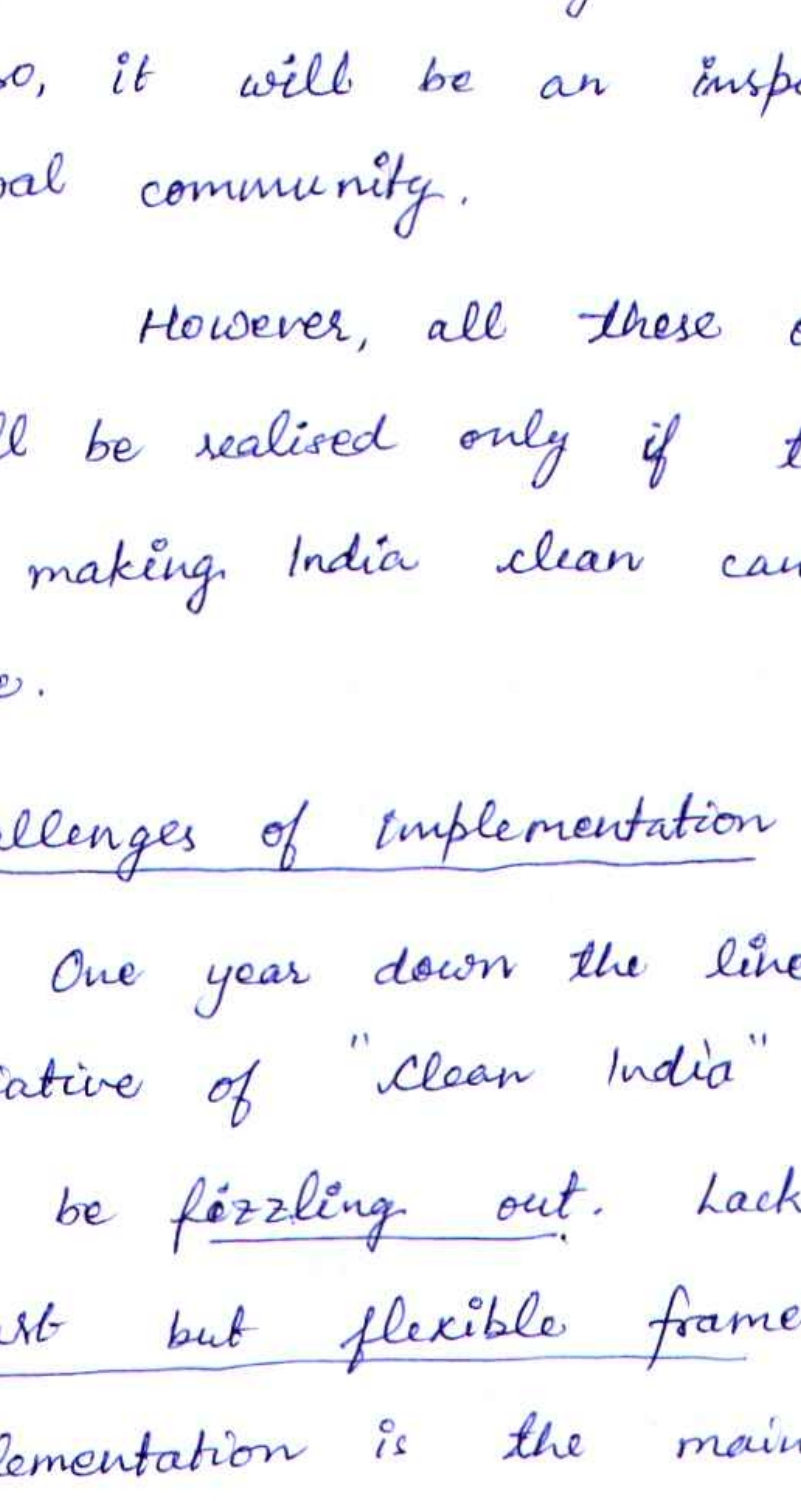 so, it will be an insp
bal community.
However, all these
ll be realised only if t
making India clean can
e.
allenges of implementation
One year down the line
iative of "Clean India"
be fizzling out. Lack
ust but flexible frame
lementation is the main